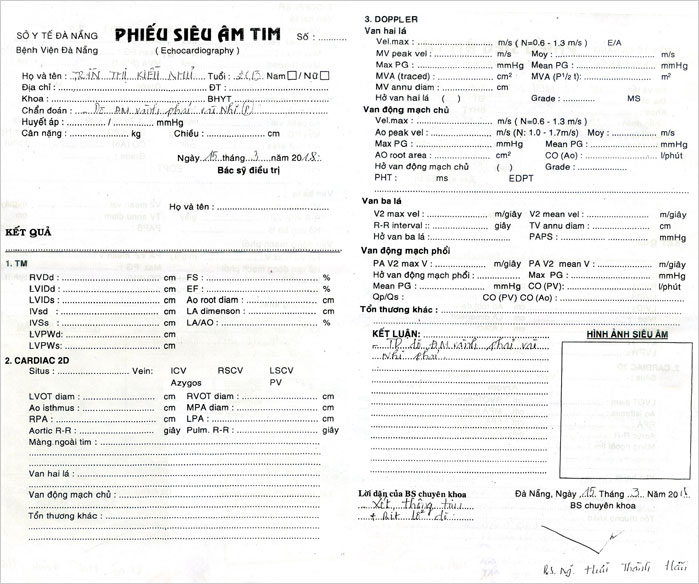 SỞ Y TẾ ĐÀ NẴNG
Bệnh Viện Đà Nẵng
PHIẾU SIÊU ÂM TIM
( Echocardiography )
Số : ..........
Họ và tên : TRẦN THỊ KIỀU NHƯ Tuổi : Nam □ / Nữ □
Địa chỉ : ĐT :
Khoa : BHYT
Chẩn đoán : Dò ĐM vành phải vào Nhĩ (P)
Huyết áp : ........... / ........... mmHg
Cân nặng : ........... kg Chiều : ........... cm
Ngày 15 tháng 3 năm 2018
Bác sỹ điều trị
Họ và tên : ...........
KẾT QUẢ
1. TM
RVDd : cm FS : %
LVIDd : cm EF : %
LVIDs : cm Ao root diam : cm
IVsd : cm LA dimenson : cm
IVSs : cm LA/AO : %
LVPWd: cm
LVPWs: cm
2. CARDIAC 2D
Situs : ........... Vein: ICV RSCV LSCV
Azygos PV
LVOT diam : cm RVOT diam : cm
Ao isthmus : cm MPA diam : cm
RPA : cm LPA : cm
Aortic R-R : giây Pulm. R-R : giây
Màng ngoài tim :
Van hai lá :
Van động mạch chủ :
Tổn thương khác :
3. DOPPLER
Van hai lá
Vel.max : m/s ( N=0.6 - 1.3 m/s ) E/A
MV peak vel : m/s Moy : m/s
Max PG : mmHg Mean PG : mmHg
MVA (traced) : cm² MVA (P½ t): m²
MV annu diam : cm
Hở van hai lá ( ) Grade : MS
Van động mạch chủ
Vel.max : m/s ( N=0.6 - 1.3 m/s )
Ao peak vel : m/s (N: 1.0 - 1.7m/s) Moy : m/s
Max PG : mmHg Mean PG : mmHg
AO root area : cm² CO (Ao) : l/phút
Hở van động mạch chủ ( ) Grade :
PHT : ms EDPT
Van ba lá
V2 max vel : m/giây V2 mean vel : m/giây
R-R interval :: giây TV annu diam : cm
Hở van ba lá : PAPS : mmHg
Van động mạch phổi
PA V2 max V : m/giây PA V2 mean V : m/giây
Hở van động mạch phổi : Max PG : mmHg
Mean PG : mmHg CO (PV): l/phút
Qp/Qs : CO (PV) CO (Ao) :
Tổn thương khác :
KẾT LUẬN:
- TD dò ĐM vành phải vào
Nhĩ phải.
HÌNH ẢNH SIÊU ÂM
Lời dặn của BS chuyên khoa
- Xét, thông tim
+ Bít lỗ dò
Đà Nẵng, Ngày 15 Tháng 3 Năm 2018
BS chuyên khoa
BS. Thành